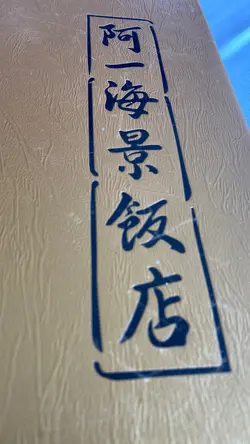 阿一海景飯店